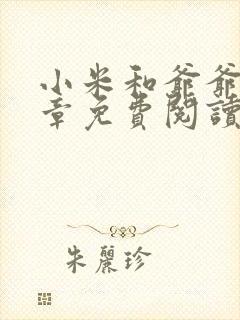 小米和爺爺
章免費閱讀
朱麗珍